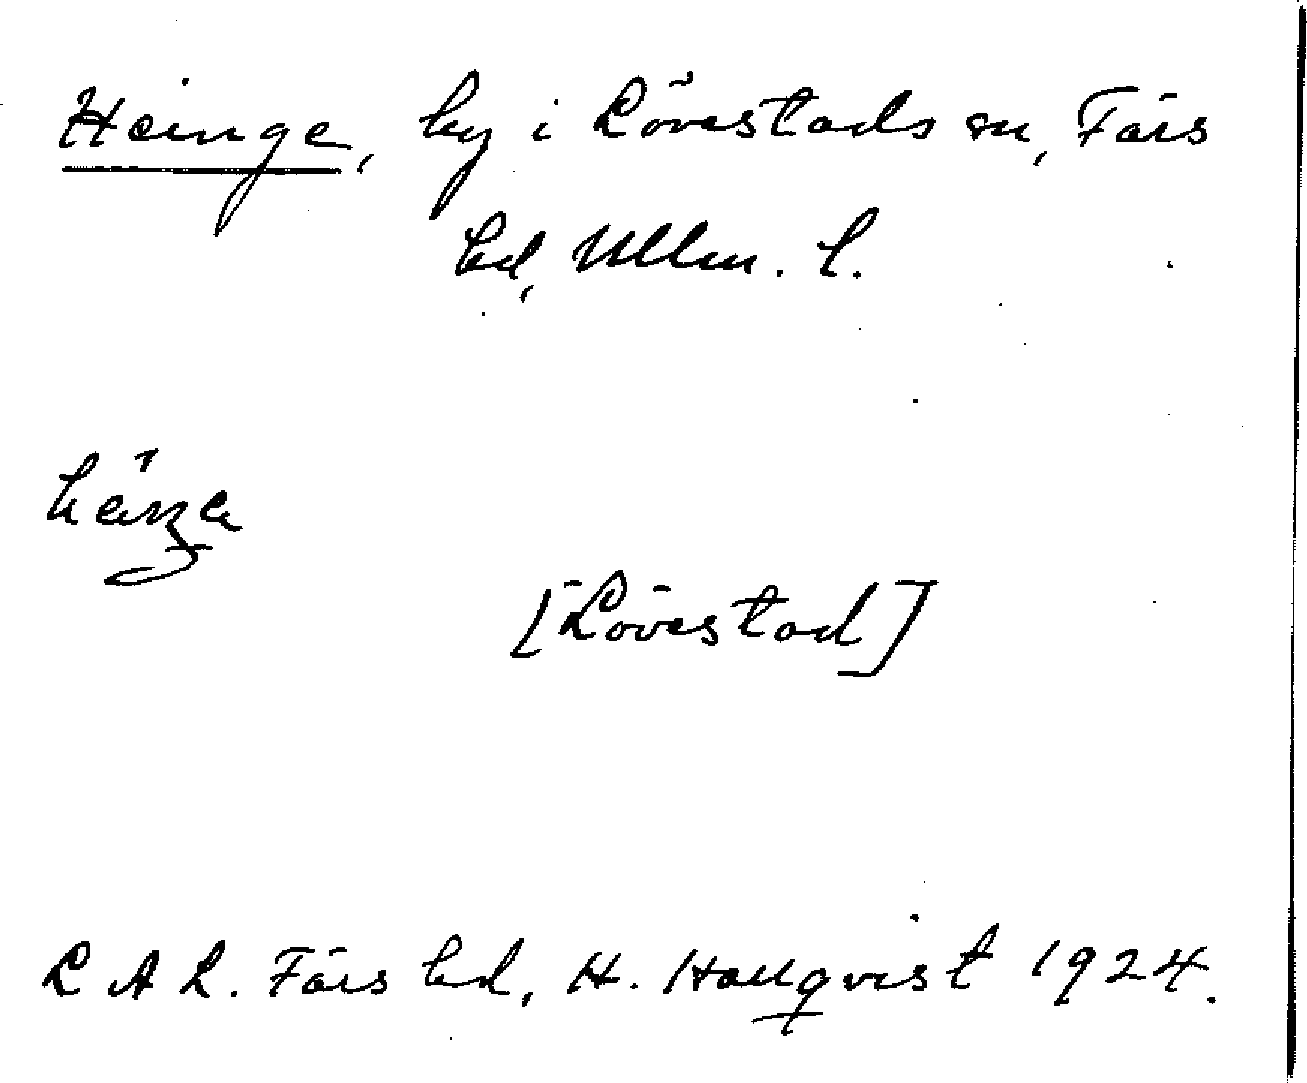 Heinge, by i Lövestads sn, Färs
hd, Mllm. l.
[Lövestad]
L A L. Färs hd, H. Hallqvist 1924.